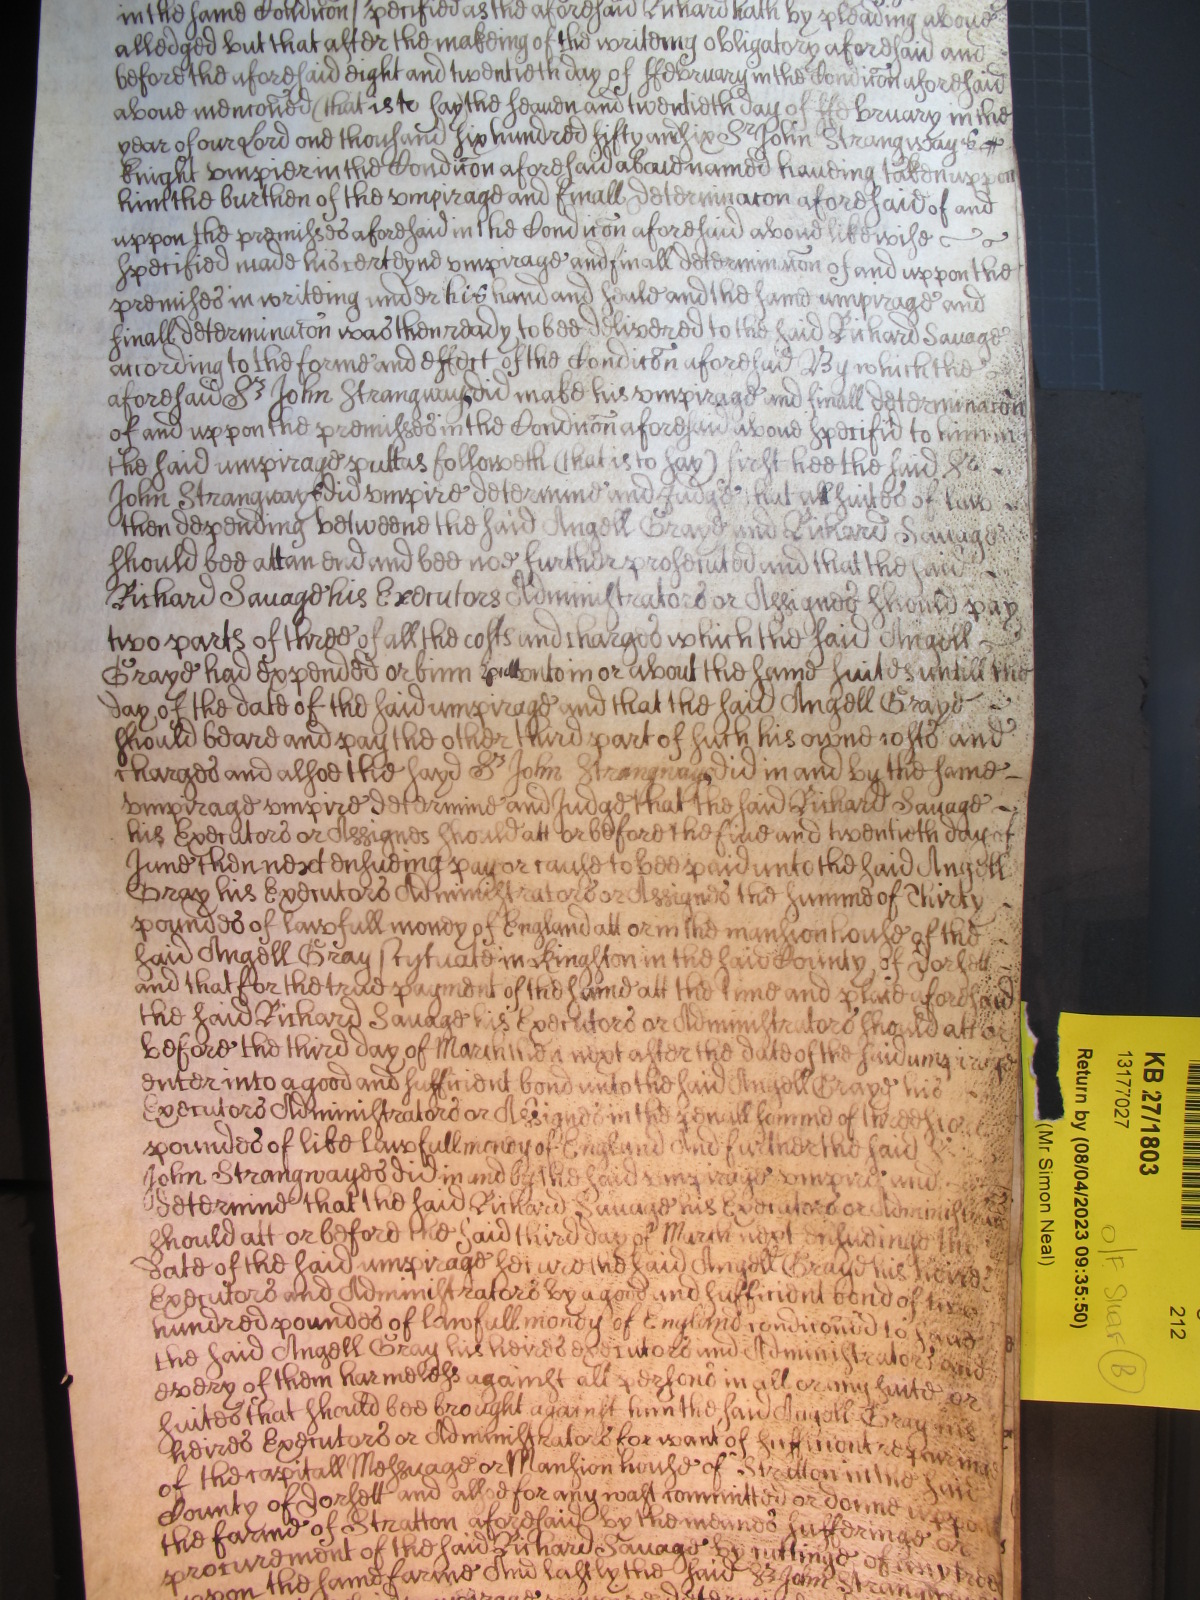 in the same Condicon specified as the aforesaid Richard hath by pleading aboue
alledged but that after the makeing of the writeing obligatory aforesaid and
before the aforesaid eight and twentieth day of ffebruary in the Condicōn aforesaid
aboue mencōned (that is to say) the seauen and twentieth day of ffebruary in the
year of our Lord one thousand six hundred fifty and six Sr John Strangwayes
knight vmpier in the Condicōn aforesaid aboue named haueing taken uppon
him the burthen of the vmpirage and finall determinacon aforesaid of and
uppon the premisses aforesaid in the Condicōn aforesaid aboue likewise
specified made his certeyne vmpirage and finall determinacōn of and uppon the
premises in writeing under his hand and seale and the same umpirage and
finall determinacōn was then ready to bee deliuered to the said Richard Sauage
according to the forme and effect of the Condicōn aforesaid By which the
aforesaid Sr John Strangways did make his vmpirage and finall determinacōn
of and uppon the premisses in the Condicōn aforesaid aboue specifid to him in
the said umpirage putt as followeth (that is to say) first hee the said Sr
John Strangwayes did vmpire determine and Judge that all suites of law
then depending betweene the said Angell Graye and Richard Sauage
should bee att an end and bee noe further prosecuted and that the said
Richard Sauage his Executors Administrators or Assignes should pay
two parts of three of all the costs and charges which the said Angell
Graye had expended or binn putt unto in or about the same suites untill the
day of the date of the said umpirage and that the said Angell Graye
should beare and pay the other third part of such his owne costs and
charges and alsoe the sayd Sr John Strangways did in and by the same
vmpirage vmpire determine and Judge that the said Richard Sauage
his Executors or Assignes should att or before the fiue and twentieth day of
June then next ensueing pay or cause to bee paid unto the said Angell
Gray his Executors Administrators or Assignes the summe of Thirty
poundes of lawfull money of England att or in the mansion house of the
said Angell Gray scytuate in Kingston in the said County of Dorsett
and that for the true payment of the same att the time and place aforesaid
the said Richard Sauage his Executors or Administrators should att or
before the third day of March then next after the date of the said umpirage
enter into a good and sufficient bond unto the said Angell Graye his
Executors Administrators or Assignes in the penall somme of threescore
poundes of like lawfull money of England And further the said Sr
John Strangwayes did in and by the said vmpirage vmpire and
determine that the said Richard Sauage his Executors or Administrators
should att or before the said third day of March next ensueinge the
date of the said umpirage secure the said Angell Graye his heires
Executors and Administrators by a good and sufficient bond of two
hundred poundes of lawfull money of England condicōned to saue
the said Angell Gray his heires executors and Administrators and
every of them harmeless against all persons in all or any suite or
suites that should bee brought against him the said Angell Gray his
heires Executors or Administrators for want of sufficient repairinge
of the capitall Messuage or Mansion house of Stratton in the said
County of Dorsett and alsoe for any wast committed or donne uppon
the farme of Stratton aforesaid by the meanes sufferinge or
procurement of the said Richard Sauage by cuttinge of any trees
uppon the same farme And lastly the said Sr John Strangwayes
KB 27/1803
13177027
Return by (08/04/2023 09:35:50)
(Mr Simon Neal)
212